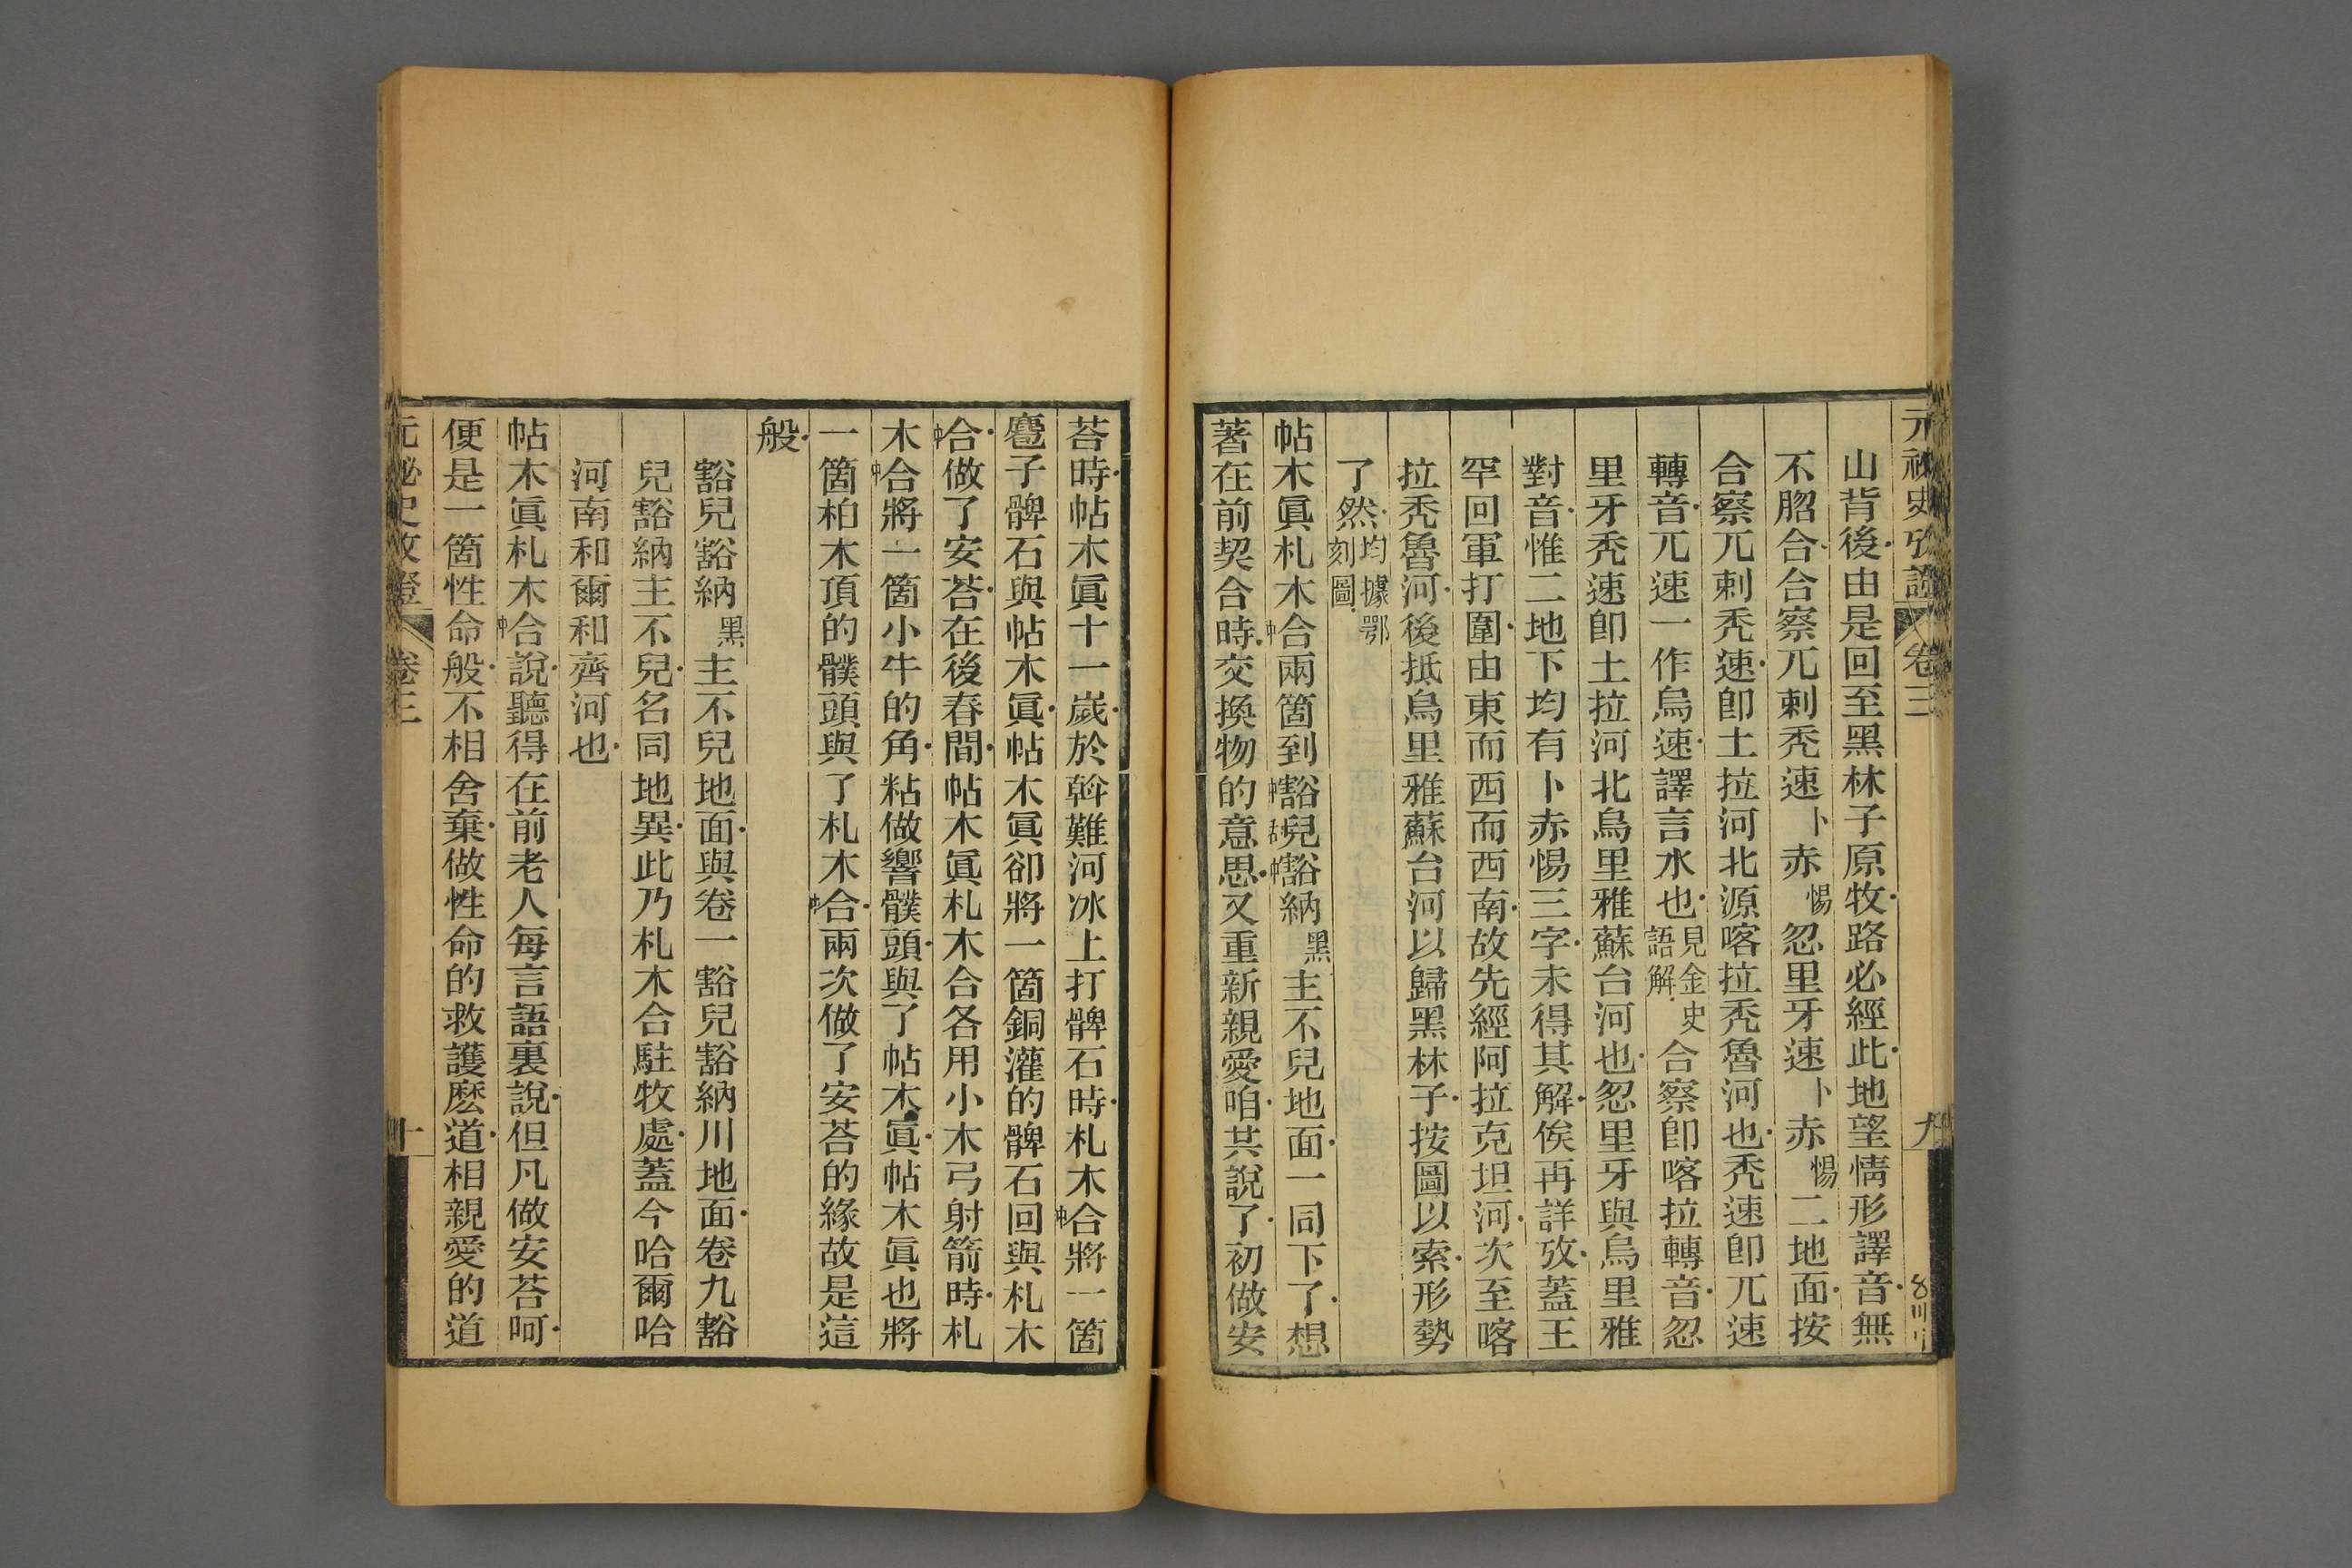 元祕史攷證 卷三 九
山背後由是回至黑林子原牧路必經此地望情形譯音無
不脗合合察兀剌禿速卜赤惕忽里牙速卜赤惕二地面按
合察兀剌禿速卽土拉河北源喀拉禿魯河也禿速卽兀速
轉音兀速一作烏速譯言水也見金史語解合察卽喀拉轉音忽
里牙禿速卽土拉河北烏里雅蘇台河也忽里牙與烏里雅
對音惟二地下均有卜赤惕三字未得其解俟再詳攷蓋王
罕回軍打圍由東而西而西南故先經阿拉克坦河次至喀
拉禿魯河後抵烏里雅蘇台河以歸黑林子按圖以索形勢
了然均據鄂刻圖
帖木眞札木中合兩箇到中豁舌兒中豁納黑主不兒地面一同下了想
著在前契合時交換物的意思又重新親愛咱共說了初做安
荅時帖木眞十一歲於斡難河冰上打髀石時札木中合將一箇
麅子髀石與帖木眞帖木眞卻將一箇銅灌的髀石回與札木
中合做了安荅在後春間帖木眞札木合各用小木弓射箭時札
木中合將一箇小牛的角粘做響髏頭與了帖木眞帖木眞也將
一箇柏木頂的髏頭與了札木中合兩次做了安荅的緣故是這
般
豁兒豁納黑主不兒地面與卷一豁兒豁納川地面卷九豁
兒豁納主不兒名同地異此乃札木合駐牧處蓋今哈爾哈
河南和爾和齊河也
帖木眞札木中合說聽得在前老人每言語裏說但凡做安荅呵
便是一箇性命般不相舍棄做性命的救護麽道相親愛的道
元祕史攷證 卷三 十